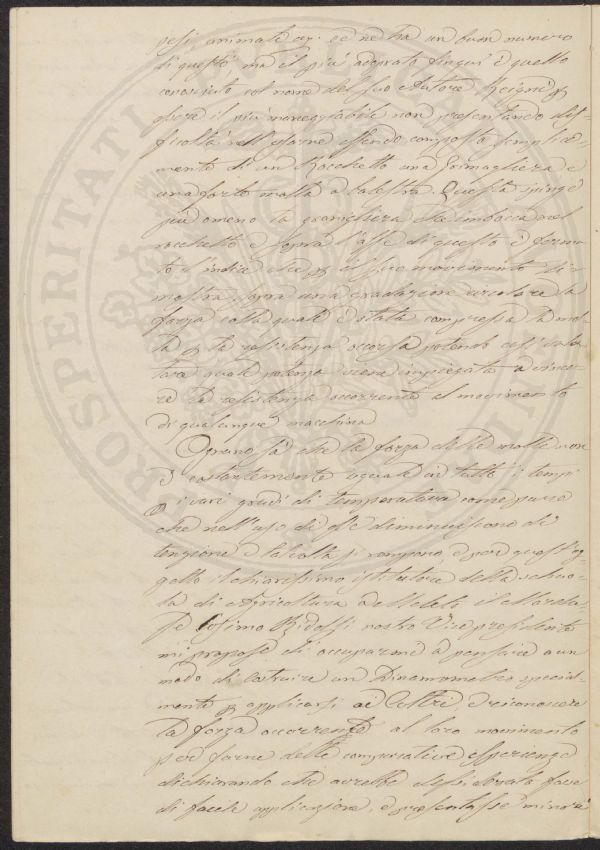 pesi animale ec. ce ne ha un buon numero
di questi ma il più adoprato finqui è quello
conosciuto col nome del suo Autore Reigni p
essere il più maneggiabile non presentando dif-
ficoltà nell'usarne essendo composto semplice-
mente di un Rocchetto una Grimagliera e
una forte molla a balestra. Questa spinge
più o meno la gramigliera che imbocca nel
rocchetto e sopra l'asse di questo è ferma-
to l'indice che p il suo movimento di-
mostra sopra una gradazione circolare la
forza colla quale è stata compressa la mol-
la p la resistenza occorsa potendo così valu-
tare quale potenza viene impiegata a vince-
re la resistenza occorrente al movimento
di qualunque macchina
Ognuno sà che la forza delle molle non
è costantemente uguale in tutti i tempi
p i varj gradi di temperatura come pure
che nell'uso di esse diminuiscono di
tensione e talvolta si rompono e per quest'og-
getto il chiarissimo istitutore della scuo-
la di Agricoltura a Meleto il Marche-
se Cosimo Ridolfi nostro Vice presidente
mi propose di occuparmi a pensare a un
modo di costruire un Dinamometro special-
mente p applicarsi ai Coltri, e riconoscere
la forza occorrente al loro movimento
per farne delle comparative esperienze
dichiarando che avrebbe desiderato fosse
di facile applicazione, e presentasse minore
PROSPERITATI PUBLICAE